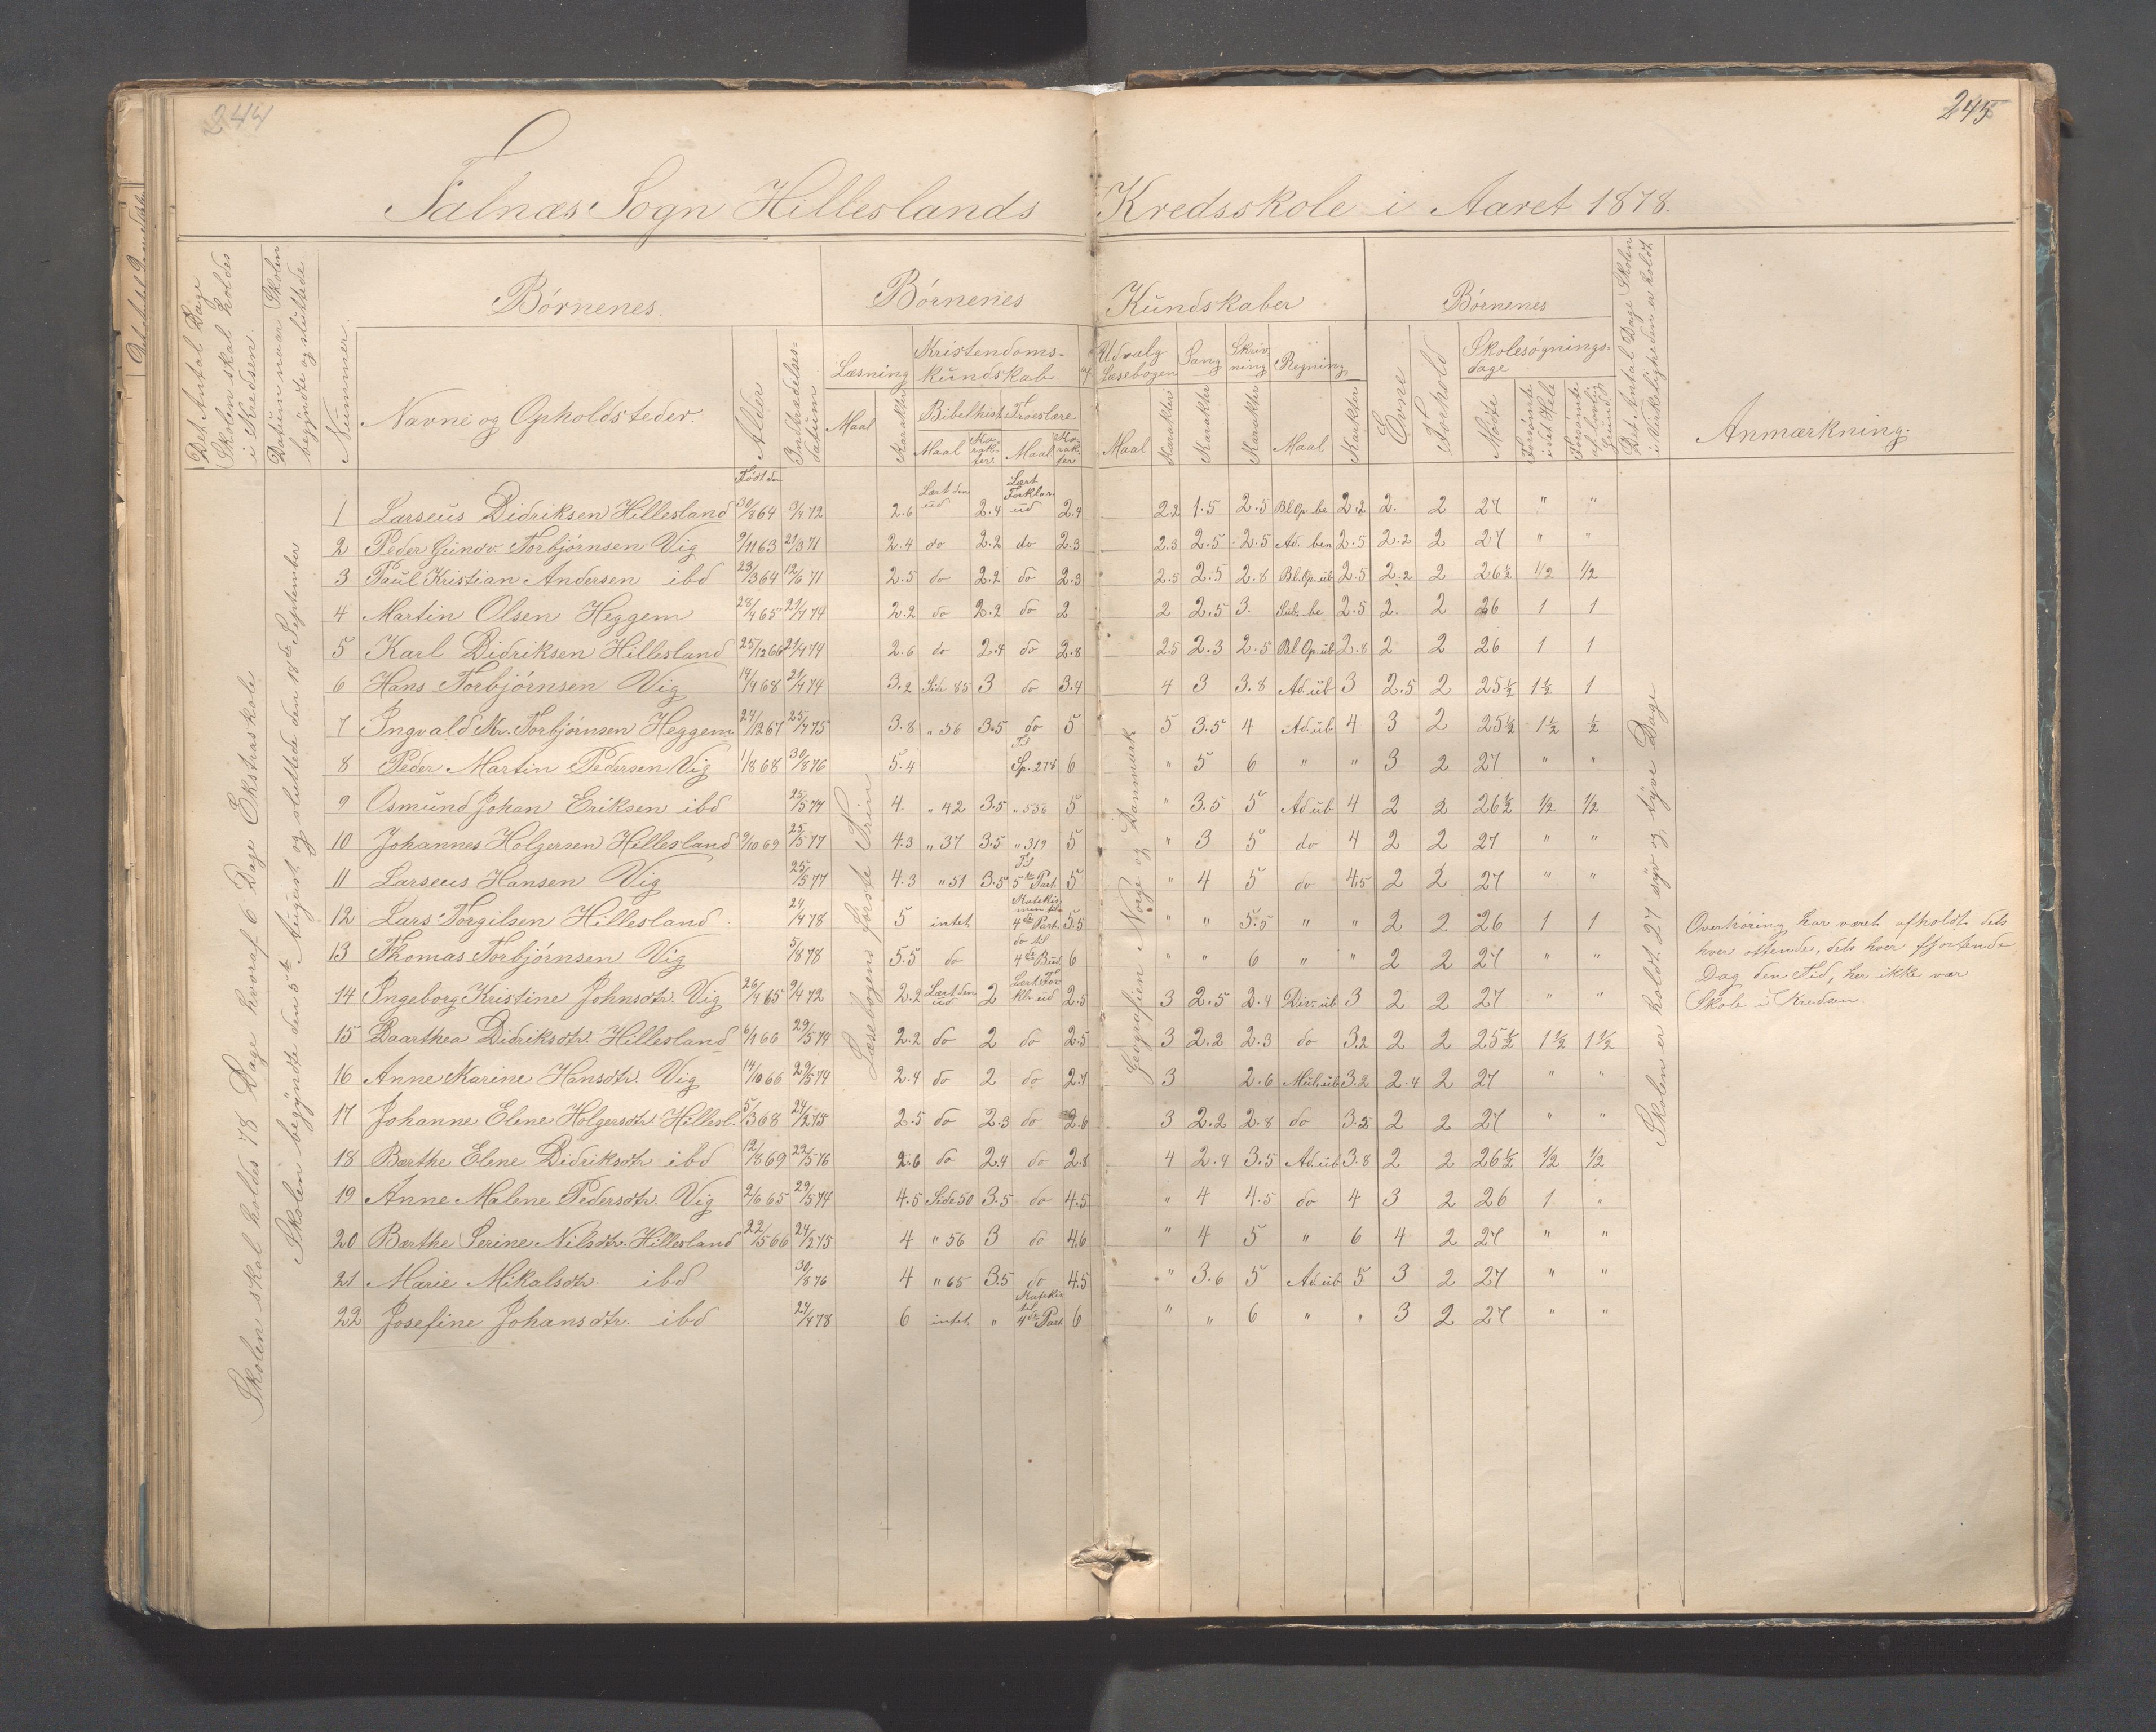 244
245
Falnæs Sogn Hilleslands Kredsskole i Aaret 1878.
Det Antal Dage Skolen skal holdes i Kredsen.
Datum naar Skolen begyndte og sluttede.
Nummer.
Børnenes.
Børnenes Kundskaber
Børnenes
Det Antal Dage Skolen i Virkeligheden er holdt.
Anmærkning.
Navne og Opholdsteder.
Alder
Indtrædelses-datum
Læsning
Kristendoms-kundskab
Udvalg af Læsebogen
Sang
Skrivning
Regning
Evne
Forhold
Skolesøgnings-dage
Maal
Karakter
Bibelhist.
Troeslære
Maal
Karakter
Maal
Karakter
Maal
Karakter
Karakter
Karakter
Maal
Karakter
Mødte
Forsømte i det Hele
Forsømte af lovlig Grund
Født den
1 Larseus Didriksen Hillesland 30/8 64 9/4 72 2.6 Lært den ud 2.4 Lært Forklar. ud 2.4 2.2 1.5 2.5 Bl Op. be 2.2 2. 2 27 " "
2 Peder Gunv. Torbjørnsen Vig 9/11 63 21/3 71 2.4 do 2.2 do 2.3 2.3 2.5 2.5 Ad. ben 2.5 2.2 2 27 " "
3 Paul Kristian Andersen ibd 23/3 64 12/6 71 2.5 do 2.2 do 2.3 2.5 2.5 2.8 Bl. Op. üb 2.5 2.2 2 26½ 1/2 1/2
4 Martin Olsen Heggem 28/4 65 21/4 74 2.2 do 2.2 do 2 2 2.5 3. Sub. be 2.5 2. 2 26 1 1
5 Karl Didriksen Hillesland 25/12 66 21/4 74 2.6 do 2.4 do 2.8 2.5 2.3 2.5 Bl Op. üb 2.8 2 2 26 1 1
6 Hans Torbjørnsen Vig 14/4 68 21/4 74 3.2 Side 85 3 do 3.4 4 3 3.8 Ad. üb 3 2.5 2 25½ 1½ 1
7 Ingvald Kr. Torbjørnsen Heggem 24/12 67 25/4 75 3.8 " 56 3.5 do 5 5 3.5 4 Ad. üb 4 3 2 25½ 1½ ½
8 Peder Martin Pedersen Vig 1/8 68 30/8 76 5.4 Til Sp. 278 6 " 5 6 " " 3 2 27 " "
9 Osmund Johan Eriksen ibd 25/5 77 4. " 42 3.5 " 556 5 " 3.5 5 Ad üb 4 2 2 26½ 1/2 1/2
10 Johannes Holgersen Hillesland 9/10 69 25/5 77 4.3 " 37 3.5 " 319 5 " 3 5 do 4 2 2 27 " "
11 Larseus Hansen Vig 25/5 77 4.3 " 51 3.5 Til 5te Part. 5 " 4 5 do 4.5 2 2 27 " "
12 Lars Torgilsen Hillesland 24/4 78 5 intet 4de Part. 5.5 " " 5.5 " " 2 2 26 1 1
13 Thomas Torbjørnsen Vig 5/8 78 5.5 do do til 4de Bud 6 " " 6 " " 2 2 27 " "
14 Ingeborg Kristine Johnsdtr. Vig 26/4 65 9/4 72 2.2 Lært den ud 2 Lært For-klr. ud 2.5 3 2.5 2.4 Div. üb 3 2 2 27 " "
15 Baarthea Didriksdtr. Hillesland 6/1 66 29/5 74 2.2 do 2 do 2.5 3 2.2 2.3 do 3.2 2 2 25½ 1½ 1½
16 Anne Karine Hansdtr. Vig 14/10 66 29/5 74 2.4 do 2 do 2.7 3 2.6 Mul. üb 3.2 2.4 2 27 " "
17 Johanne Elene Holgersdtr. Hillesl. 5/3 68 24/2 75 2.5 do 2.3 do 2.6 3 2.2 2.8 do 3.2 2 2 27 " "
18 Berthe Elene Didriksdtr ibd 12/8 69 22/5 76 2.6 do 2.4 do 2.8 4 2.4 3.5 Ad. üb 3.8 2 2 26½ 1/2 1/2
19 Anne Malene Pedersdtr. Vig 2/6 65 29/5 74 4.5 Side 50 3.5 do 4.5 " 4 4.5 do 4 3 2 26 1 "
20 Berthe Serine Nilsdtr. Hillesland 22/5 66 24/2 75 4 " 56 3 do 4.6 " 4 5 " 6 4 2 27 " "
21 Marie Mikalsdtr. ibd 30/8 76 4 " 65 3.5 do 4.5 " 3.6 5 Ad. üb 5 3 2 27 " "
22 Josefine Johansdtr. ibd 24/4 78 6 intet " til 4de Part 6 " " 6 " " 3 2 27 " "
Skolen skal holdes 78 Dage hvoraf 6 Dage Ekstraskole
Skolen begyndte den 5te August og sluttede den 18de September
Læsebogens første Trin
Geografien Norge og Danmark
Skolen er holdt 27 syv og tyve Dage
Overhøring har været afholdt dels
hver ottende, dels hver fjortende
Dag den Tid, her ikke var
Skole i Kredsen.